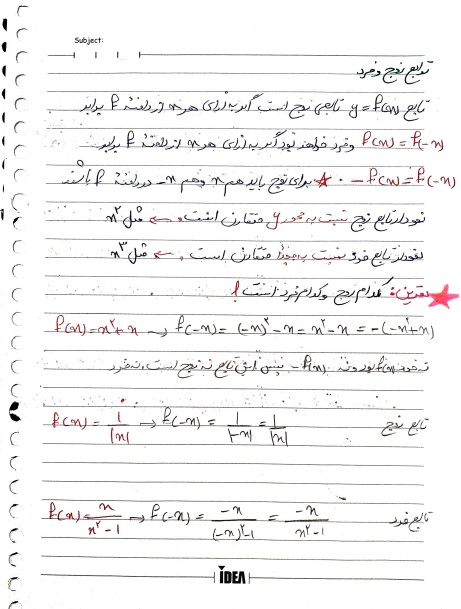 Subject:
توابع زوج و فرد
تابع y = f(x) تابعی زوج است اگر به ازای هر x از دامنهٔ f برابر
f(x) = f(-x) و فرد خواهد بود اگر به ازای هر x از دامنهٔ f برابر
-f(x) = f(-x) . ★ برای زوج باید هم x و هم -x در دامنهٔ f باشد
نمودار تابع زوج نسبت به محور y متقارن است. ← مثل x²
نمودار تابع فرد نسبت به مبدأ متقارن است. ← مثل x³
★ تمرین: کدام زوج و کدام فرد است؟
f(x) = x² + x → f(-x) = (-x)² - x = x² - x = -(-x² + x)
نه خود f(x) بود و نه -f(x). پس این تابع نه زوج است، نه فرد
f(x) = 1/|x| → f(-x) = 1/|-x| = 1/|x| تابع زوج
f(x) = x/x²-1 → f(-x) = -x/(-x)²-1 = -x/x²-1 تابع فرد
IDEA